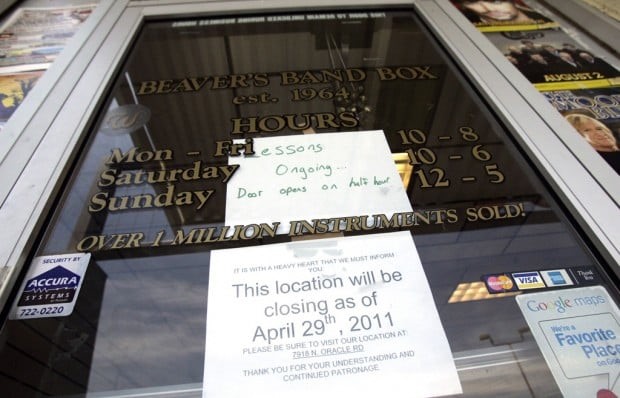 BEAVER'S BAND BOX
est. 1964
HOURS
Mon - Fri 10 - 8
Saturday 10 - 6
Sunday 12 - 5
Lessons
Ongoing...
Door opens on half hour
OVER 1 MILLION INSTRUMENTS SOLD!
IT IS WITH A HEAVY HEART THAT WE MUST INFORM
YOU.
This location will be
closing as of
April 29th, 2011
PLEASE BE SURE TO VISIT OUR LOCATION AT:
7918 N. ORACLE RD
THANK YOU FOR YOUR UNDERSTANDING AND
CONTINUED PATRONAGE.
SECURITY BY
ACCURA
SYSTEMS
722-0220
MasterCard VISA
Thank
Google maps
We're a
Favorite
Place
on Google
AUGUST 2